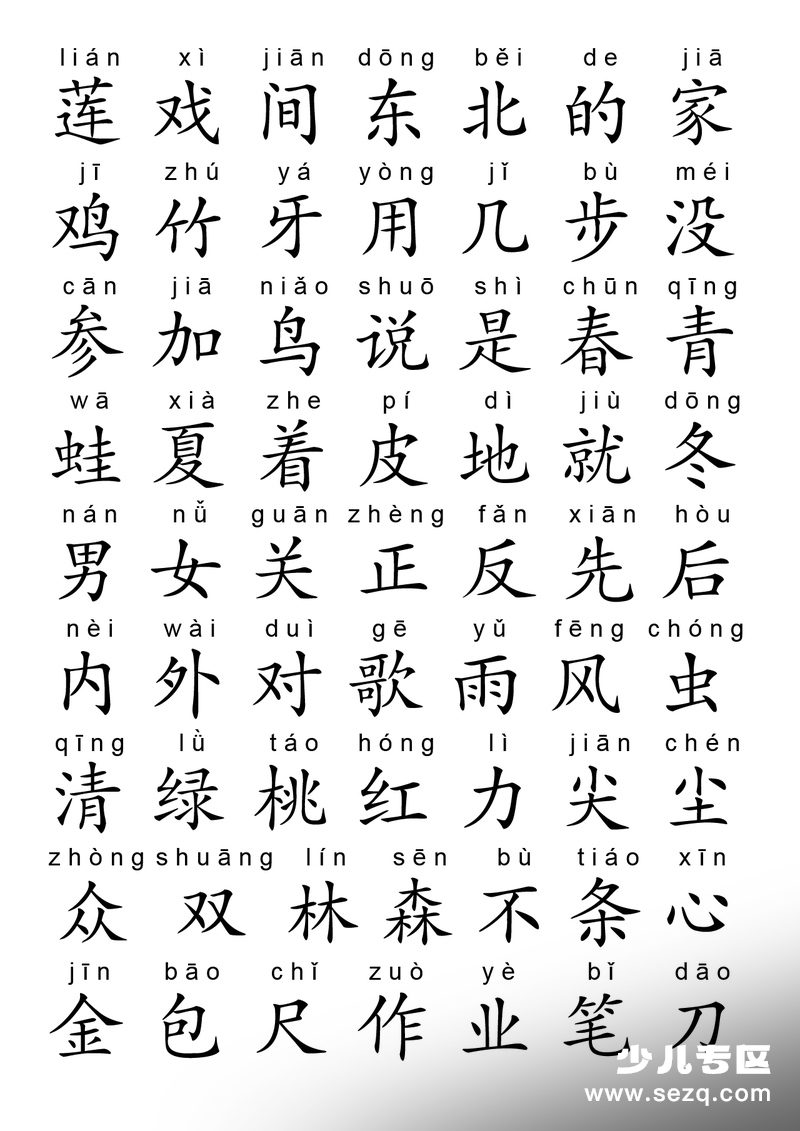 lián xì jiān dōng běi de jiā
莲 戏 间 东 北 的 家
jī zhú yá yòng jǐ bù méi
鸡 竹 牙 用 几 步 没
cān jiā niǎo shuō shì chūn qīng
参 加 鸟 说 是 春 青
wā xià zhe pí dì jiù dōng
蛙 夏 着 皮 地 就 冬
nán nǚ guān zhèng fǎn xiān hòu
男 女 关 正 反 先 后
nèi wài duì gē yǔ fēng chóng
内 外 对 歌 雨 风 虫
qīng lǜ táo hóng lì jiān chén
清 绿 桃 红 力 尖 尘
zhòng shuāng lín sēn bù tiáo xīn
众 双 林 森 不 条 心
jīn bāo chǐ zuò yè bǐ dāo
金 包 尺 作 业 笔 刀
少儿专区
www.sezq.com